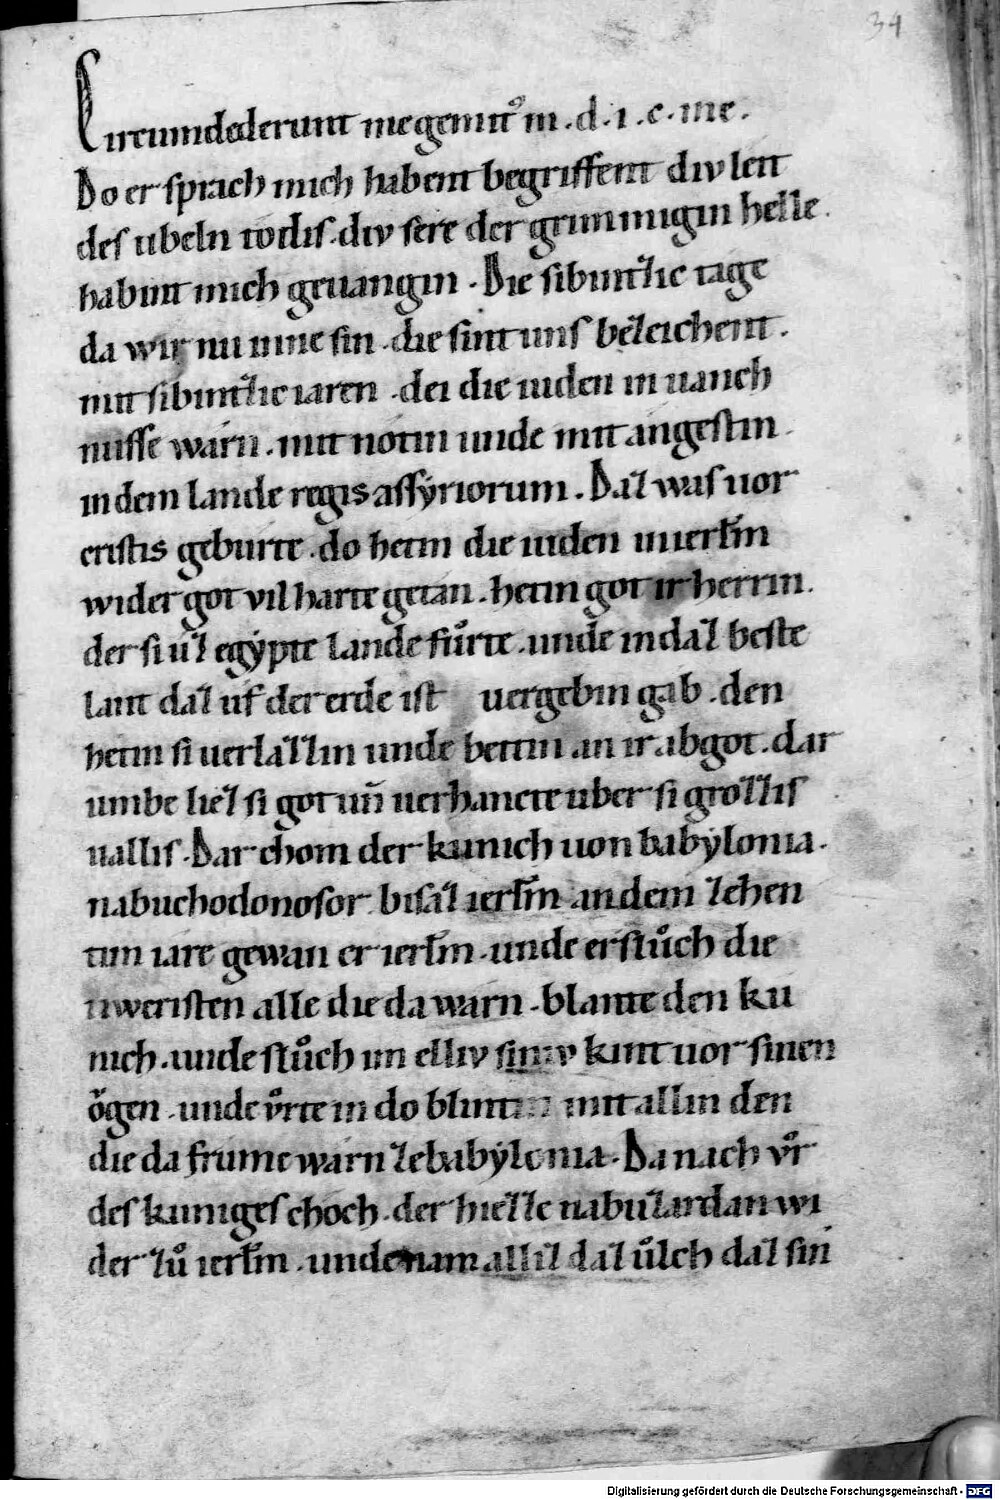 34
Circumdederunt me gemitꝰ m . d . i . c . me .
Do er sprach mich habent begriffent div leit
des ubeln todis . div sere der grimmigin helle .
habint mich geuangin . Die sibinzic tage
da wir nu inne sin . die sint uns bezeichent .
mit sibinzic iaren . dei die iuden in uanch
nusse warn . mit notin unde mit angestin .
in dem lande regis assẏriorum . Daz was uor
cristis geburte . do hetin die iuden in ierlm̄
wider got vil harte getan . hetin got ir herrin .
der si uz egẏpte lande fuͦrte . unde in daz beste
lant daz uf der erde ist uergebin gab . den
hetin si uerlazzin unde bettin an ir abgot . dar
umbe liez si got uñ uerhancte uber si grozzis
uallis . Dar chom der kunich uon babẏlonia .
nabuchodonosor . bisaz ierlm̄ . an dem zehen
tim iare gewan er ierlm̄ . unde erstuͦch die
tiweristen alle die da warn . blante den ku
nich . unde stuͦch im elliv siniv kint uor sinen
oͮgen . unde vͦrte in do blintin mit allin den
die da frume warn zebabẏlonia . Da nach vͦr
des kuniges choch . der hiezze nabuzardan wi
der zuͦ ierlm̄ . unde nam alliz daz uͦlch daz sin
Digitalisierung gefördert durch die Deutsche Forschungsgemeinschaft - DFG